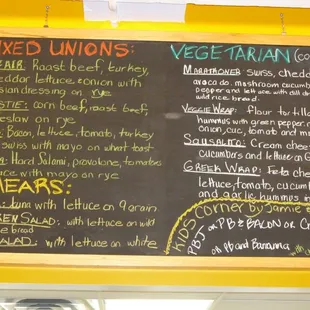 IXED UNIONS:
FAIR: Roast beef, turkey,
eddar lettuce, onion with
sian dressing on rye
STIE: corn beef, roast beef,
eslaw on rye
: Bacon, lettuce, tomato, turkey
swiss with mayo on wheat toast
: Hard Salami, provolone, tomatoes
uce with mayo on rye
HEARS:
: tuna with lettuce on 9 grain
KEN SALAD: with lettuce on wild
e bread
SALAD: with lettuce on white
VEGETARIAN (co
MARATHONER swiss, chedd
avocado, mushroom cucumb
pepper and lettuce with dill
wild rice bread.
VEGGIE WRAP: flour tortill
hummus with green pepper,
onion, cuc, tomato and m
SAUSALITO: Cream chees
cucumbers and lettuce on
GREEK WRAP: Feta chee
lettuce, tomato, cucum
and garlic hummus i
KIDS Corner by Jamie
PBJ or PB & BACON or C
or PB and Banana